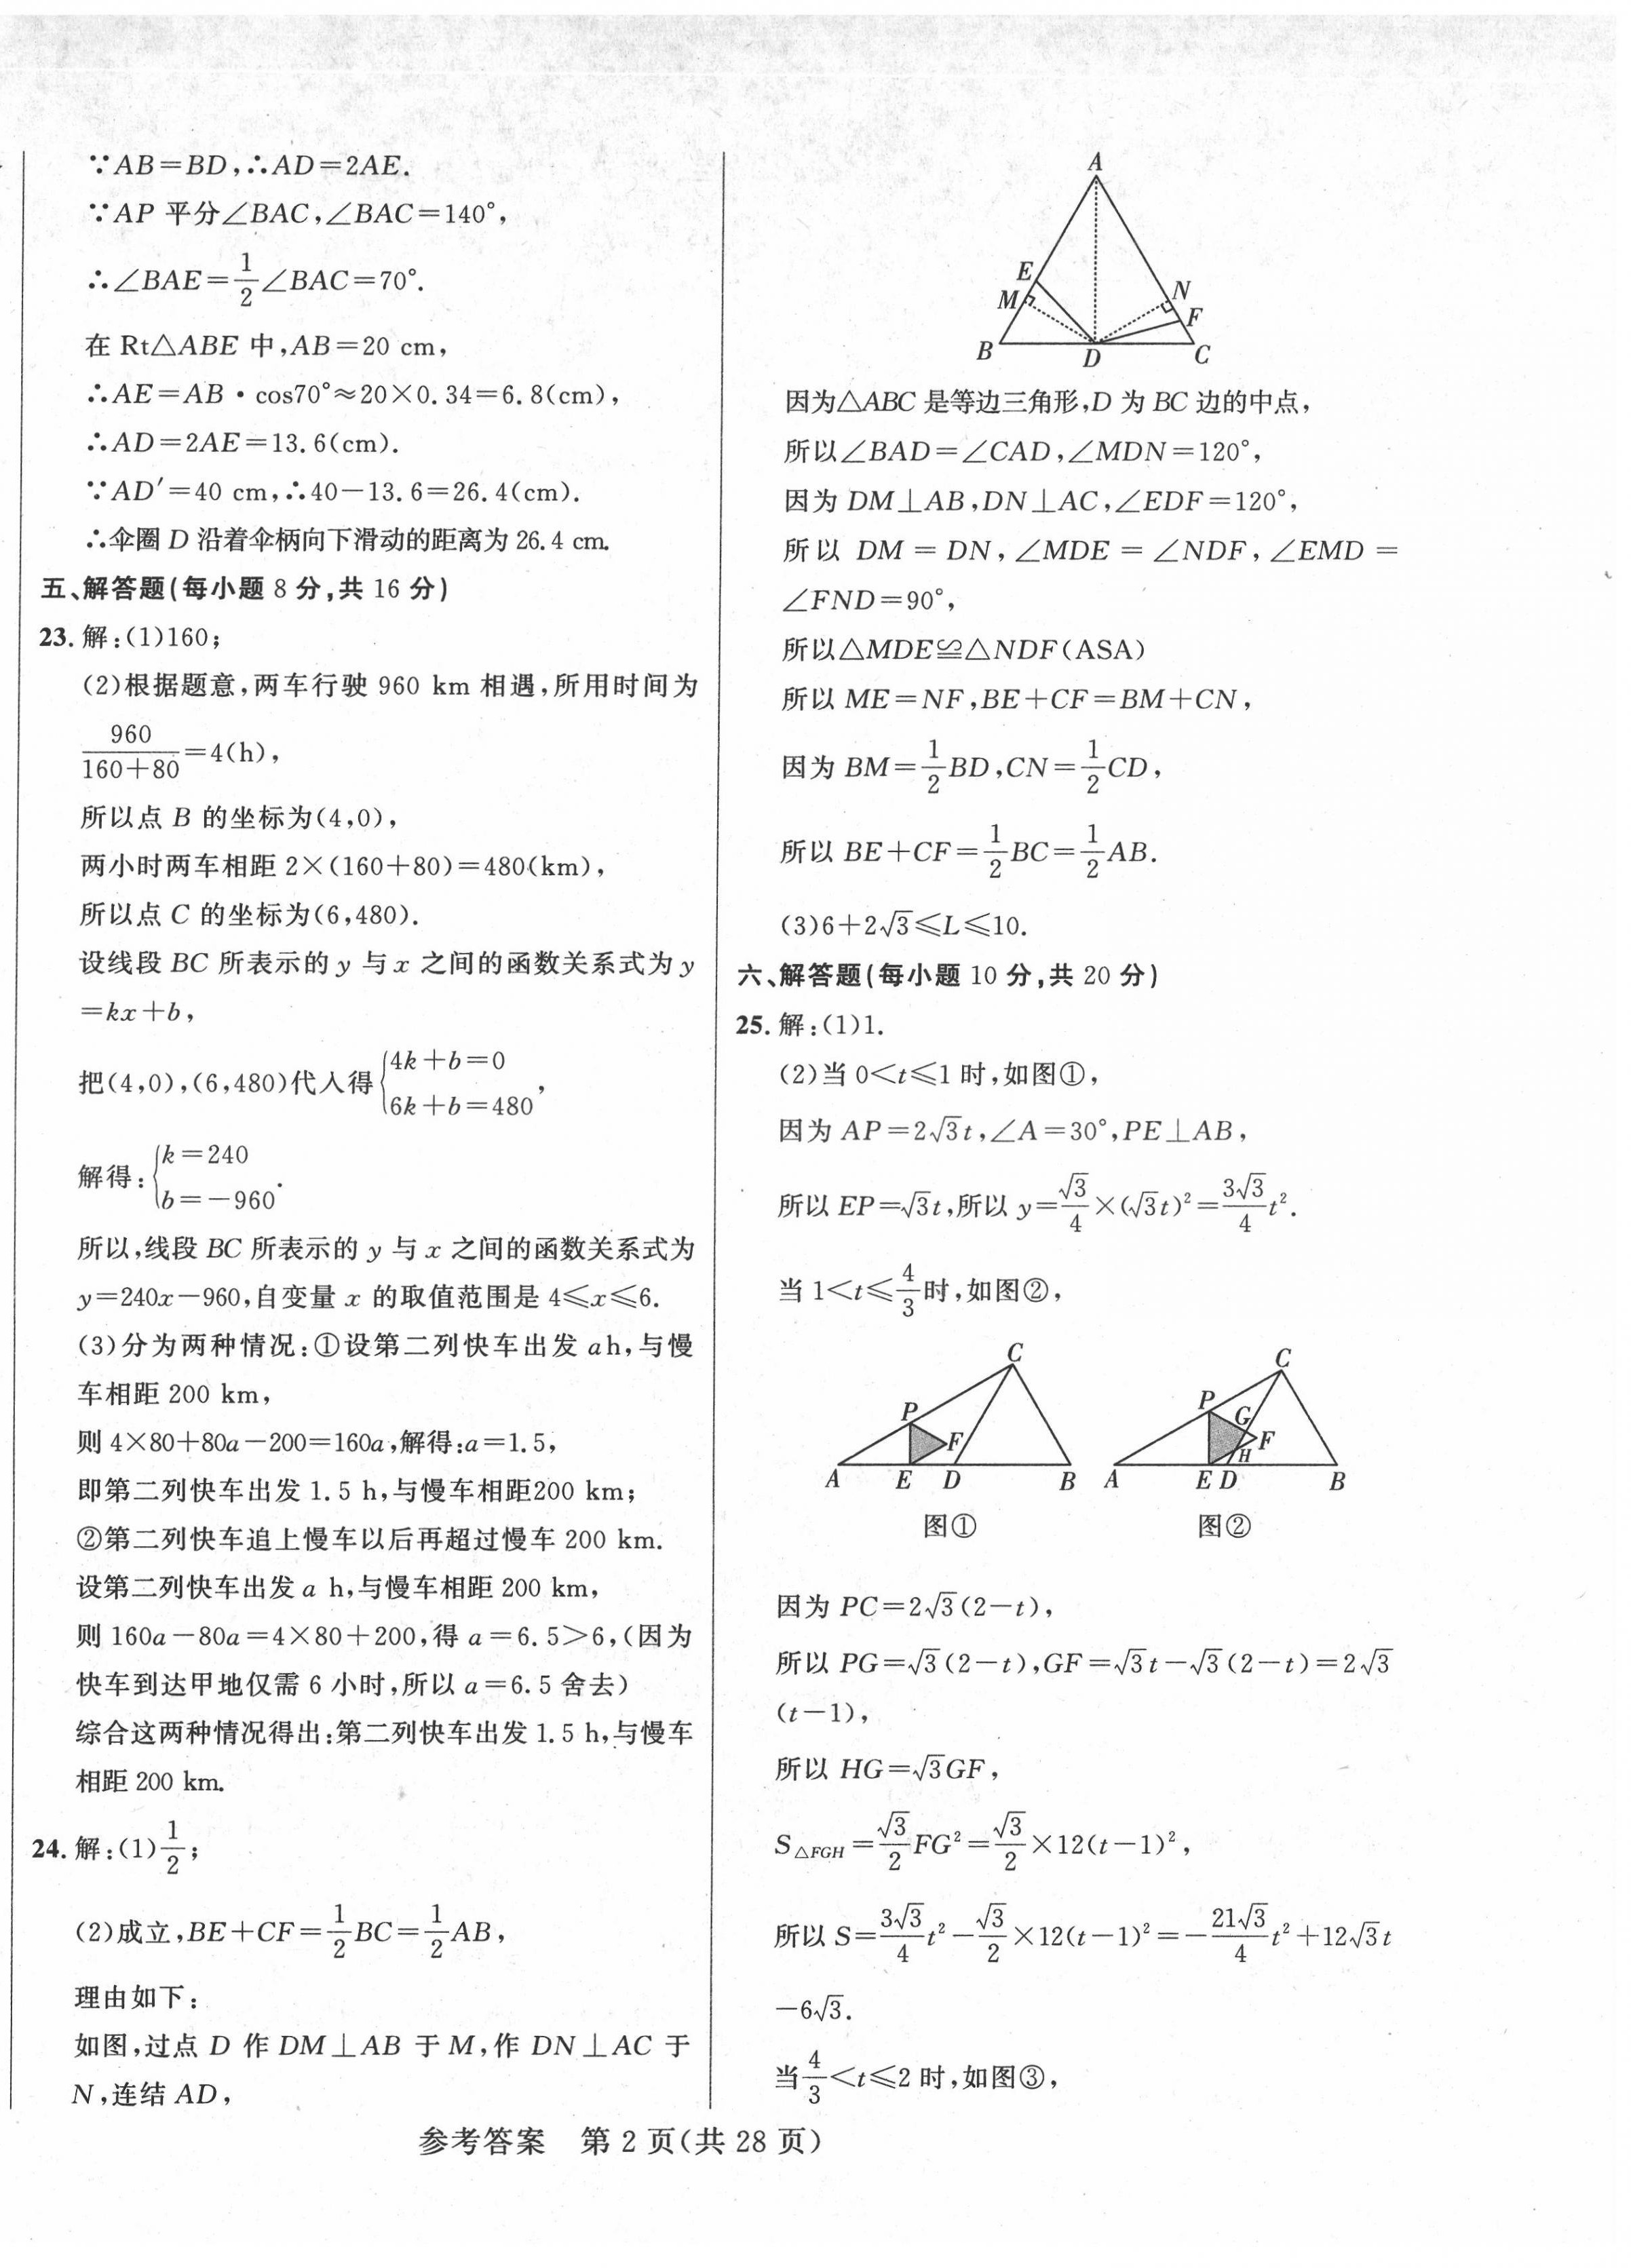 ∵AB=BD,∴AD=2AE.
∵AP 平分∠BAC,∠BAC=140°,
∴∠BAE=1/2∠BAC=70°.
在 Rt△ABE 中,AB=20 cm,
∴AE=AB·cos70°≈20×0.34=6.8(cm),
∴AD=2AE=13.6(cm).
∵AD′=40 cm,∴40-13.6=26.4(cm).
∴伞圈 D 沿着伞柄向下滑动的距离为 26.4 cm.
五、解答题(每小题 8 分,共 16 分)
23. 解:(1)160;
(2)根据题意,两车行驶 960 km 相遇,所用时间为
960/(160+80)=4(h),
所以点 B 的坐标为(4,0),
两小时两车相距 2×(160+80)=480(km),
所以点 C 的坐标为(6,480).
设线段 BC 所表示的 y 与 x 之间的函数关系式为 y
=kx+b,
把(4,0),(6,480)代入得{4k+b=0
6k+b=480,
解得:{k=240
b=-960.
所以,线段 BC 所表示的 y 与 x 之间的函数关系式为
y=240x-960,自变量 x 的取值范围是 4≤x≤6.
(3)分为两种情况:①设第二列快车出发 a h,与慢
车相距 200 km,
则 4×80+80a-200=160a,解得:a=1.5,
即第二列快车出发 1.5 h,与慢车相距200 km;
②第二列快车追上慢车以后再超过慢车 200 km.
设第二列快车出发 a h,与慢车相距 200 km,
则 160a-80a=4×80+200,得 a=6.5>6,(因为
快车到达甲地仅需 6 小时,所以 a=6.5 舍去)
综合这两种情况得出:第二列快车出发 1.5 h,与慢车
相距 200 km.
24. 解:(1)1/2;
(2)成立,BE+CF=1/2BC=1/2AB,
理由如下:
如图,过点 D 作 DM⊥AB 于 M,作 DN⊥AC 于
N,连结 AD,
A
E
M
N
F
B
D
C
因为△ABC 是等边三角形,D 为 BC 边的中点,
所以∠BAD=∠CAD,∠MDN=120°,
因为 DM⊥AB,DN⊥AC,∠EDF=120°,
所以 DM=DN,∠MDE=∠NDF,∠EMD=
∠FND=90°,
所以△MDE≌△NDF(ASA)
所以 ME=NF,BE+CF=BM+CN,
因为 BM=1/2BD,CN=1/2CD,
所以 BE+CF=1/2BC=1/2AB.
(3)6+2√3≤L≤10.
六、解答题(每小题 10 分,共 20 分)
25. 解:(1)1.
(2)当 0<t≤1 时,如图①,
因为 AP=2√3t,∠A=30°,PE⊥AB,
所以 EP=√3t,所以 y=√3/4×(√3t)²=3√3/4t².
当 1<t≤4/3时,如图②,
C
P
F
A E D B
图①
C
P
G
F
H
A E D B
图②
因为 PC=2√3(2-t),
所以 PG=√3(2-t),GF=√3t-√3(2-t)=2√3
(t-1),
所以 HG=√3GF,
S△FGH=√3/2FG²=√3/2×12(t-1)²,
所以 S=3√3/4t²-√3/2×12(t-1)²=-21√3/4t²+12√3t
-6√3.
当4/3<t≤2 时,如图③,
参考答案 第 2 页(共 28 页)